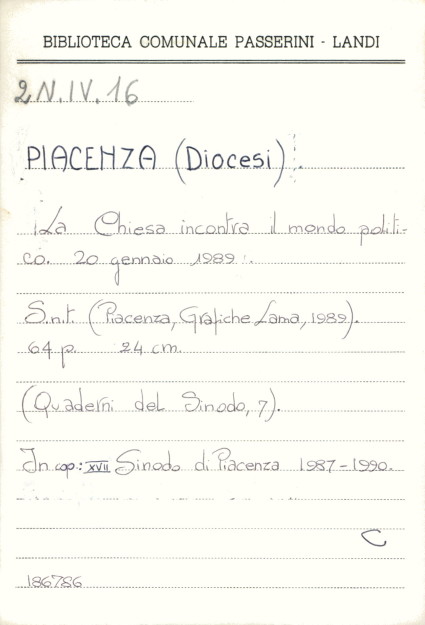 BIBLIOTECA COMUNALE PASSERINI - LANDI
2N.IV.16
PIACENZA (Diocesi).
La Chiesa incontra il mondo politi-
co. 20 gennaio 1989.
S.n.t. (Piacenza, Grafiche Lama, 1989).
64 p. 24 cm.
(Quaderni del Sinodo, 7).
In cop.: XVII Sinodo di Piacenza 1987-1990.
C
186786